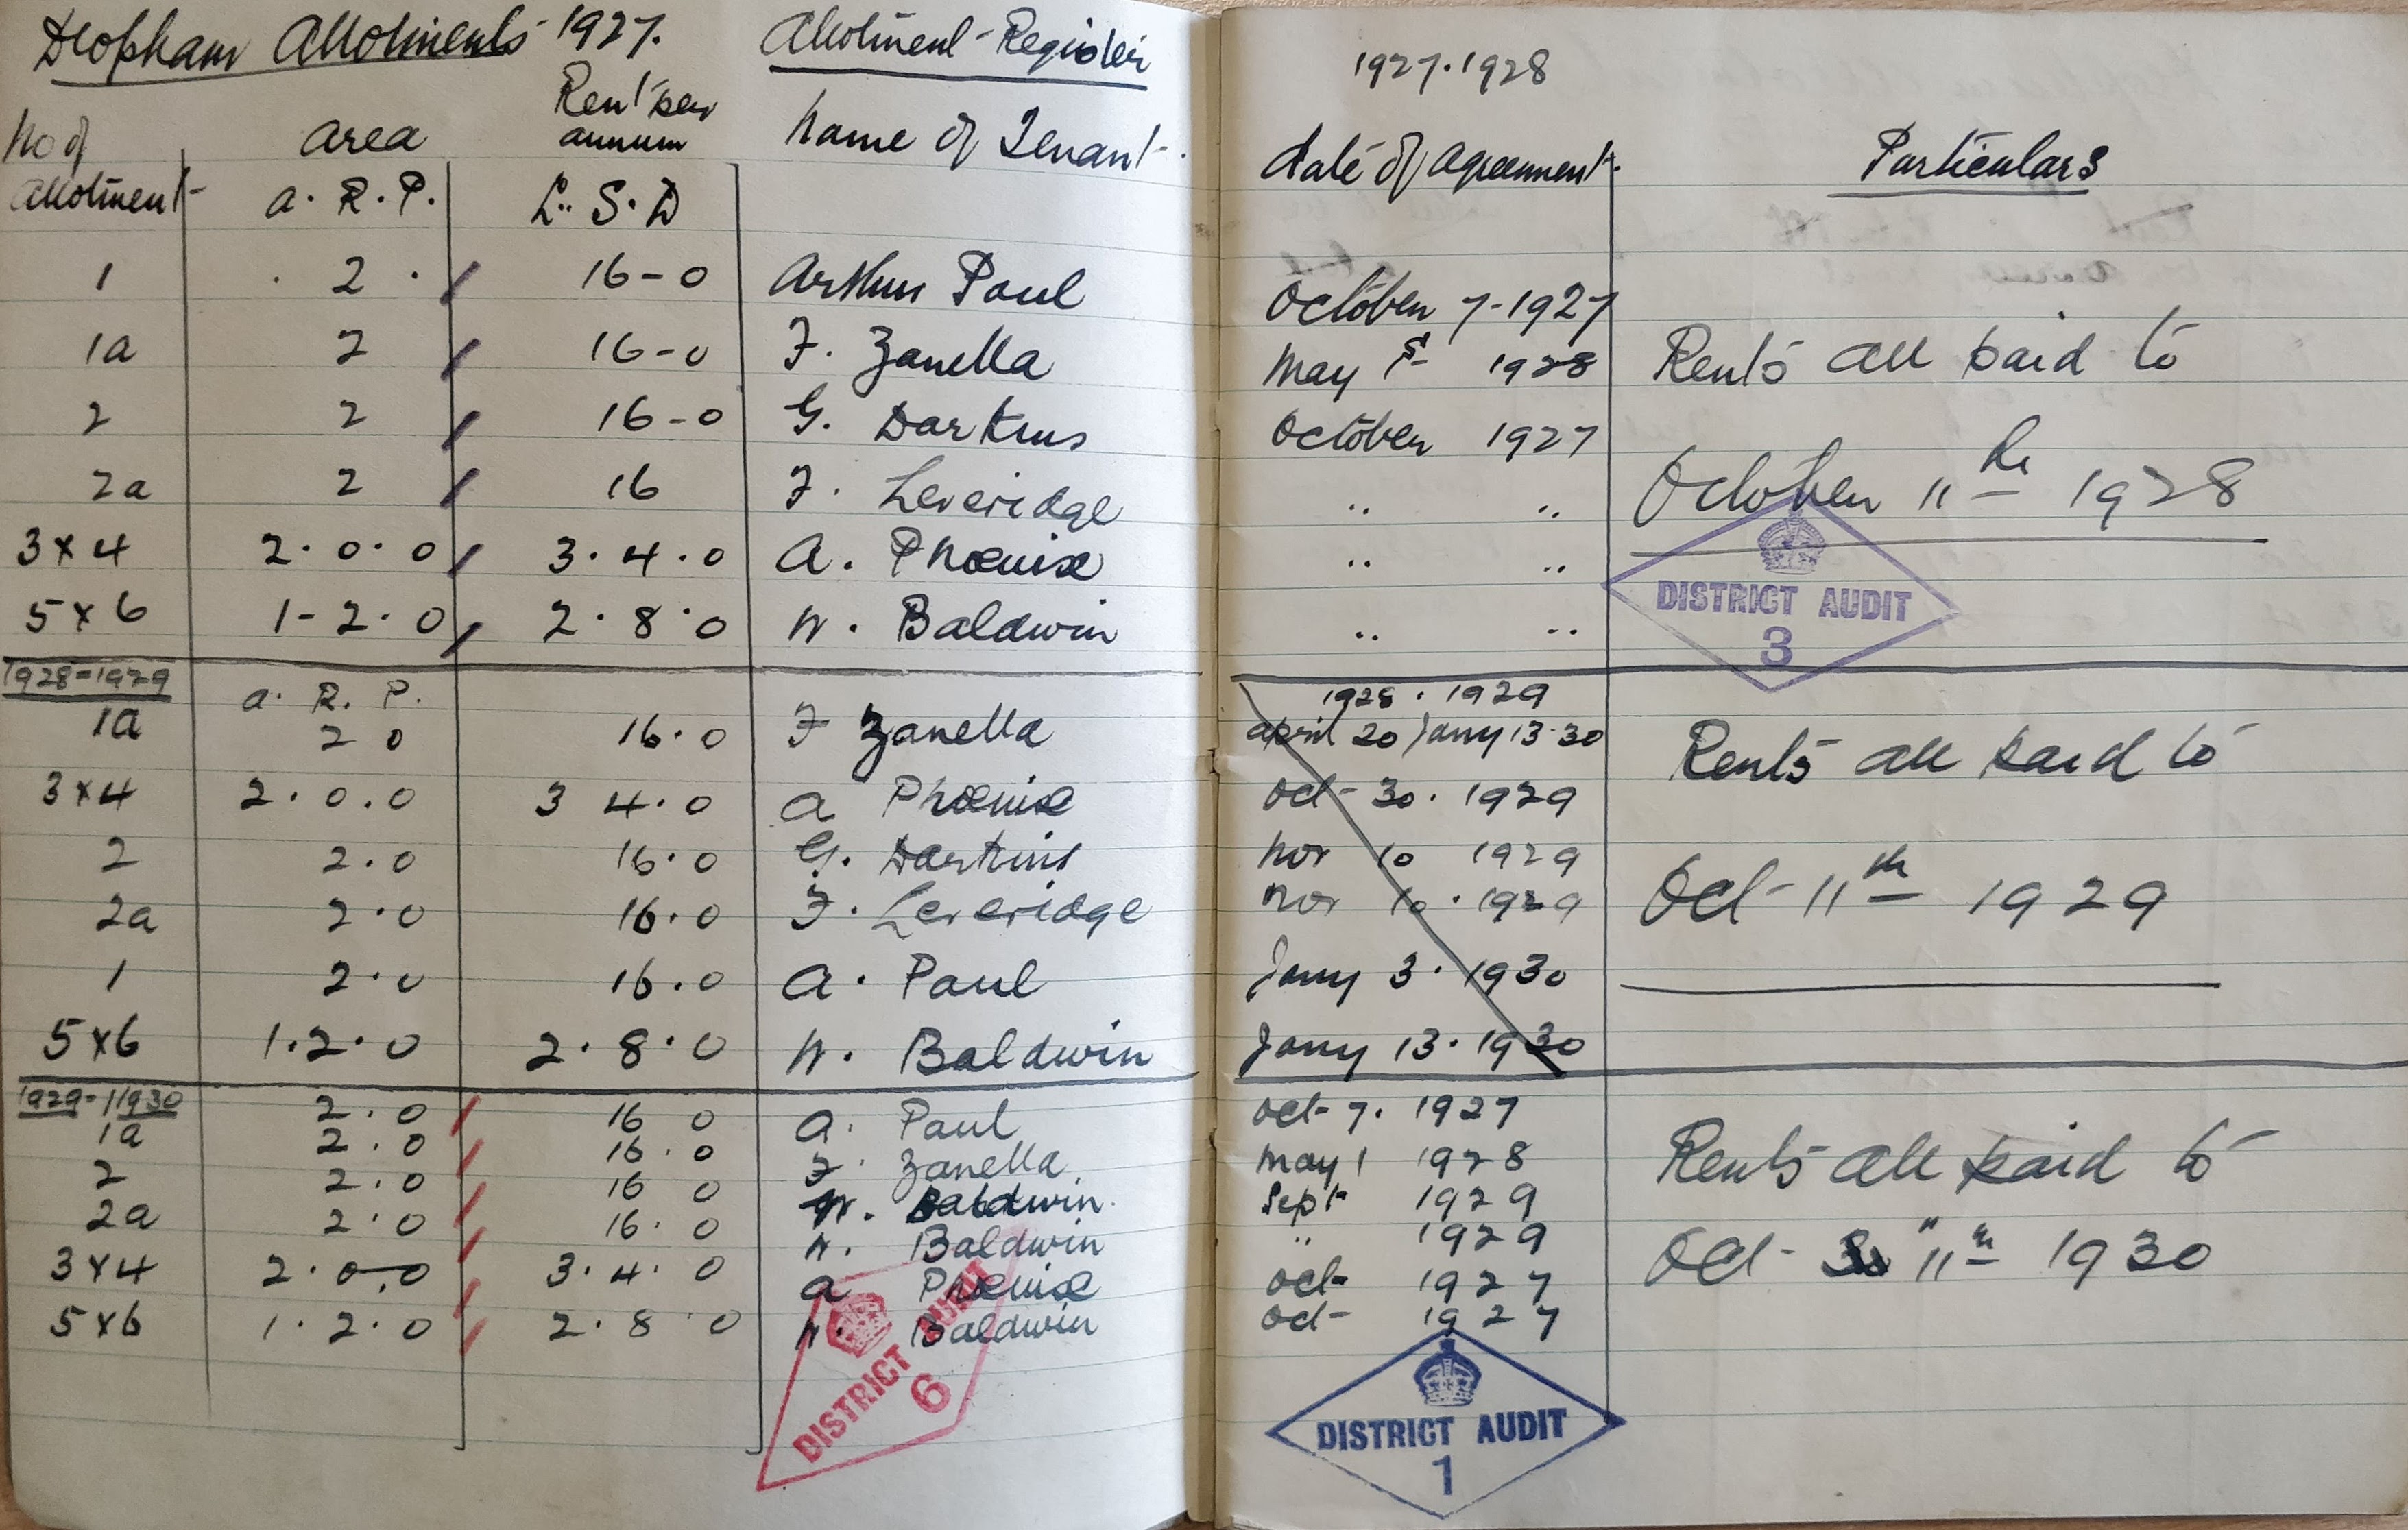 Deopham Allotments 1927. Allotment Register
1927.1928
No of Area Rent per Name of Tenant. Date of Agreement. Particulars
Allotment annum
a. R. P. £. S. D
1 2 16-0 Arthur Paul October 7-1927
1a 2 16-0 F. Zanella May 1st 1928 Rents all paid to
2 2 16-0 G. Darkins October 1927
2a 2 16 F. Leveridge " " October 11th 1928
3 x 4 2.0.0 3.4.0 A. Phoenix " "
5 x 6 1-2.0 2.8.0 W. Baldwin " "
DISTRICT AUDIT
3
1928-1929 a. R. P. 1928.1929
1a 2 0 16.0 F Zanella April 20 Jany 13.30 Rents all paid to
3 x 4 2.0.0 3 4.0 A Phoenix Oct 30. 1929
2 2.0 16.0 G. Darkins Nov 10 1929
2a 2.0 16.0 F. Leveridge Nov 10.1929 Oct 11th 1929
1 2.0 16.0 A. Paul Jany 3.1930
5 x 6 1.2.0 2.8.0 W. Baldwin Jany 13.1930
1929-1930 2.0 16 0 A. Paul Oct 7. 1927
1a 2.0 16.0 F. Zanella May 1 1928 Rents all paid to
2 2.0 16 0 W. Baldwin. Sept 1929
2a 2.0 16.0 W. Baldwin " 1929 Oct 11th 1930
3 x 4 2.0.0 3.4.0 A Phoenix Oct 1927
5 x 6 1.2.0 2.8.0 W. Baldwin Oct 1927
DISTRICT AUDIT
6
DISTRICT AUDIT
1